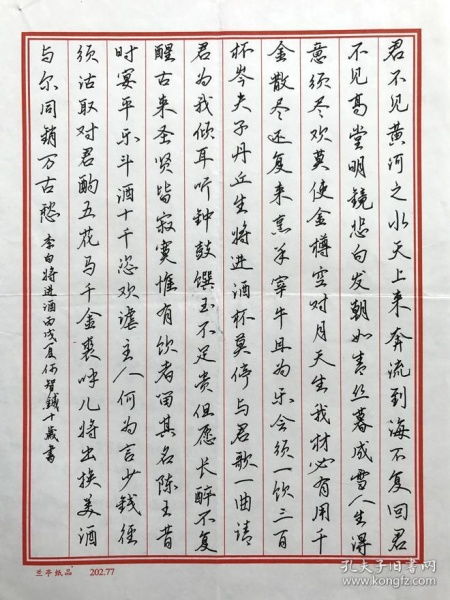 君不见黄河之水天上来奔流到海不复回君
不见高堂明镜悲白发朝如青丝暮成雪人生得
意须尽欢莫使金樽空对月天生我材必有用千
金散尽还复来烹羊宰牛且为乐会须一饮三百
杯岑夫子丹丘生将进酒杯莫停与君歌一曲请
君为我倾耳听钟鼓馔玉不足贵但愿长醉不复
醒古来圣贤皆寂寞惟有饮者留其名陈王昔
时宴平乐斗酒十千恣欢谑主人何为言少钱径
须沽取对君酌五花马千金裘呼儿将出换美酒
与尔同销万古愁 李白将进酒丙戌夏何智十岁书
兰亭纸品 202.77
孔夫子旧书网